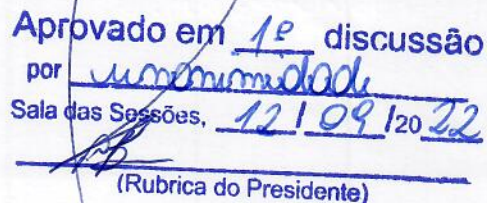 Aprovado em 1ª discussão
por unanimidade
Sala das Sessões, 12 / 09 /20 22
(Rubrica do Presidente)